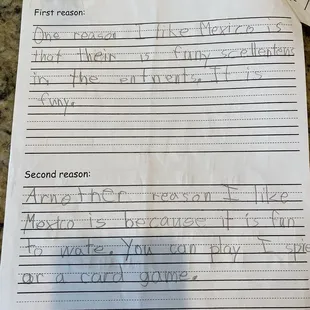 First reason:
One reason I like Mexico is
that their is funy scelletens
in the entnents. It is
funy.
Second reason:
Arnother reason I like
Mexico is because it is fun
to wate. You can play I spie
or a card game.